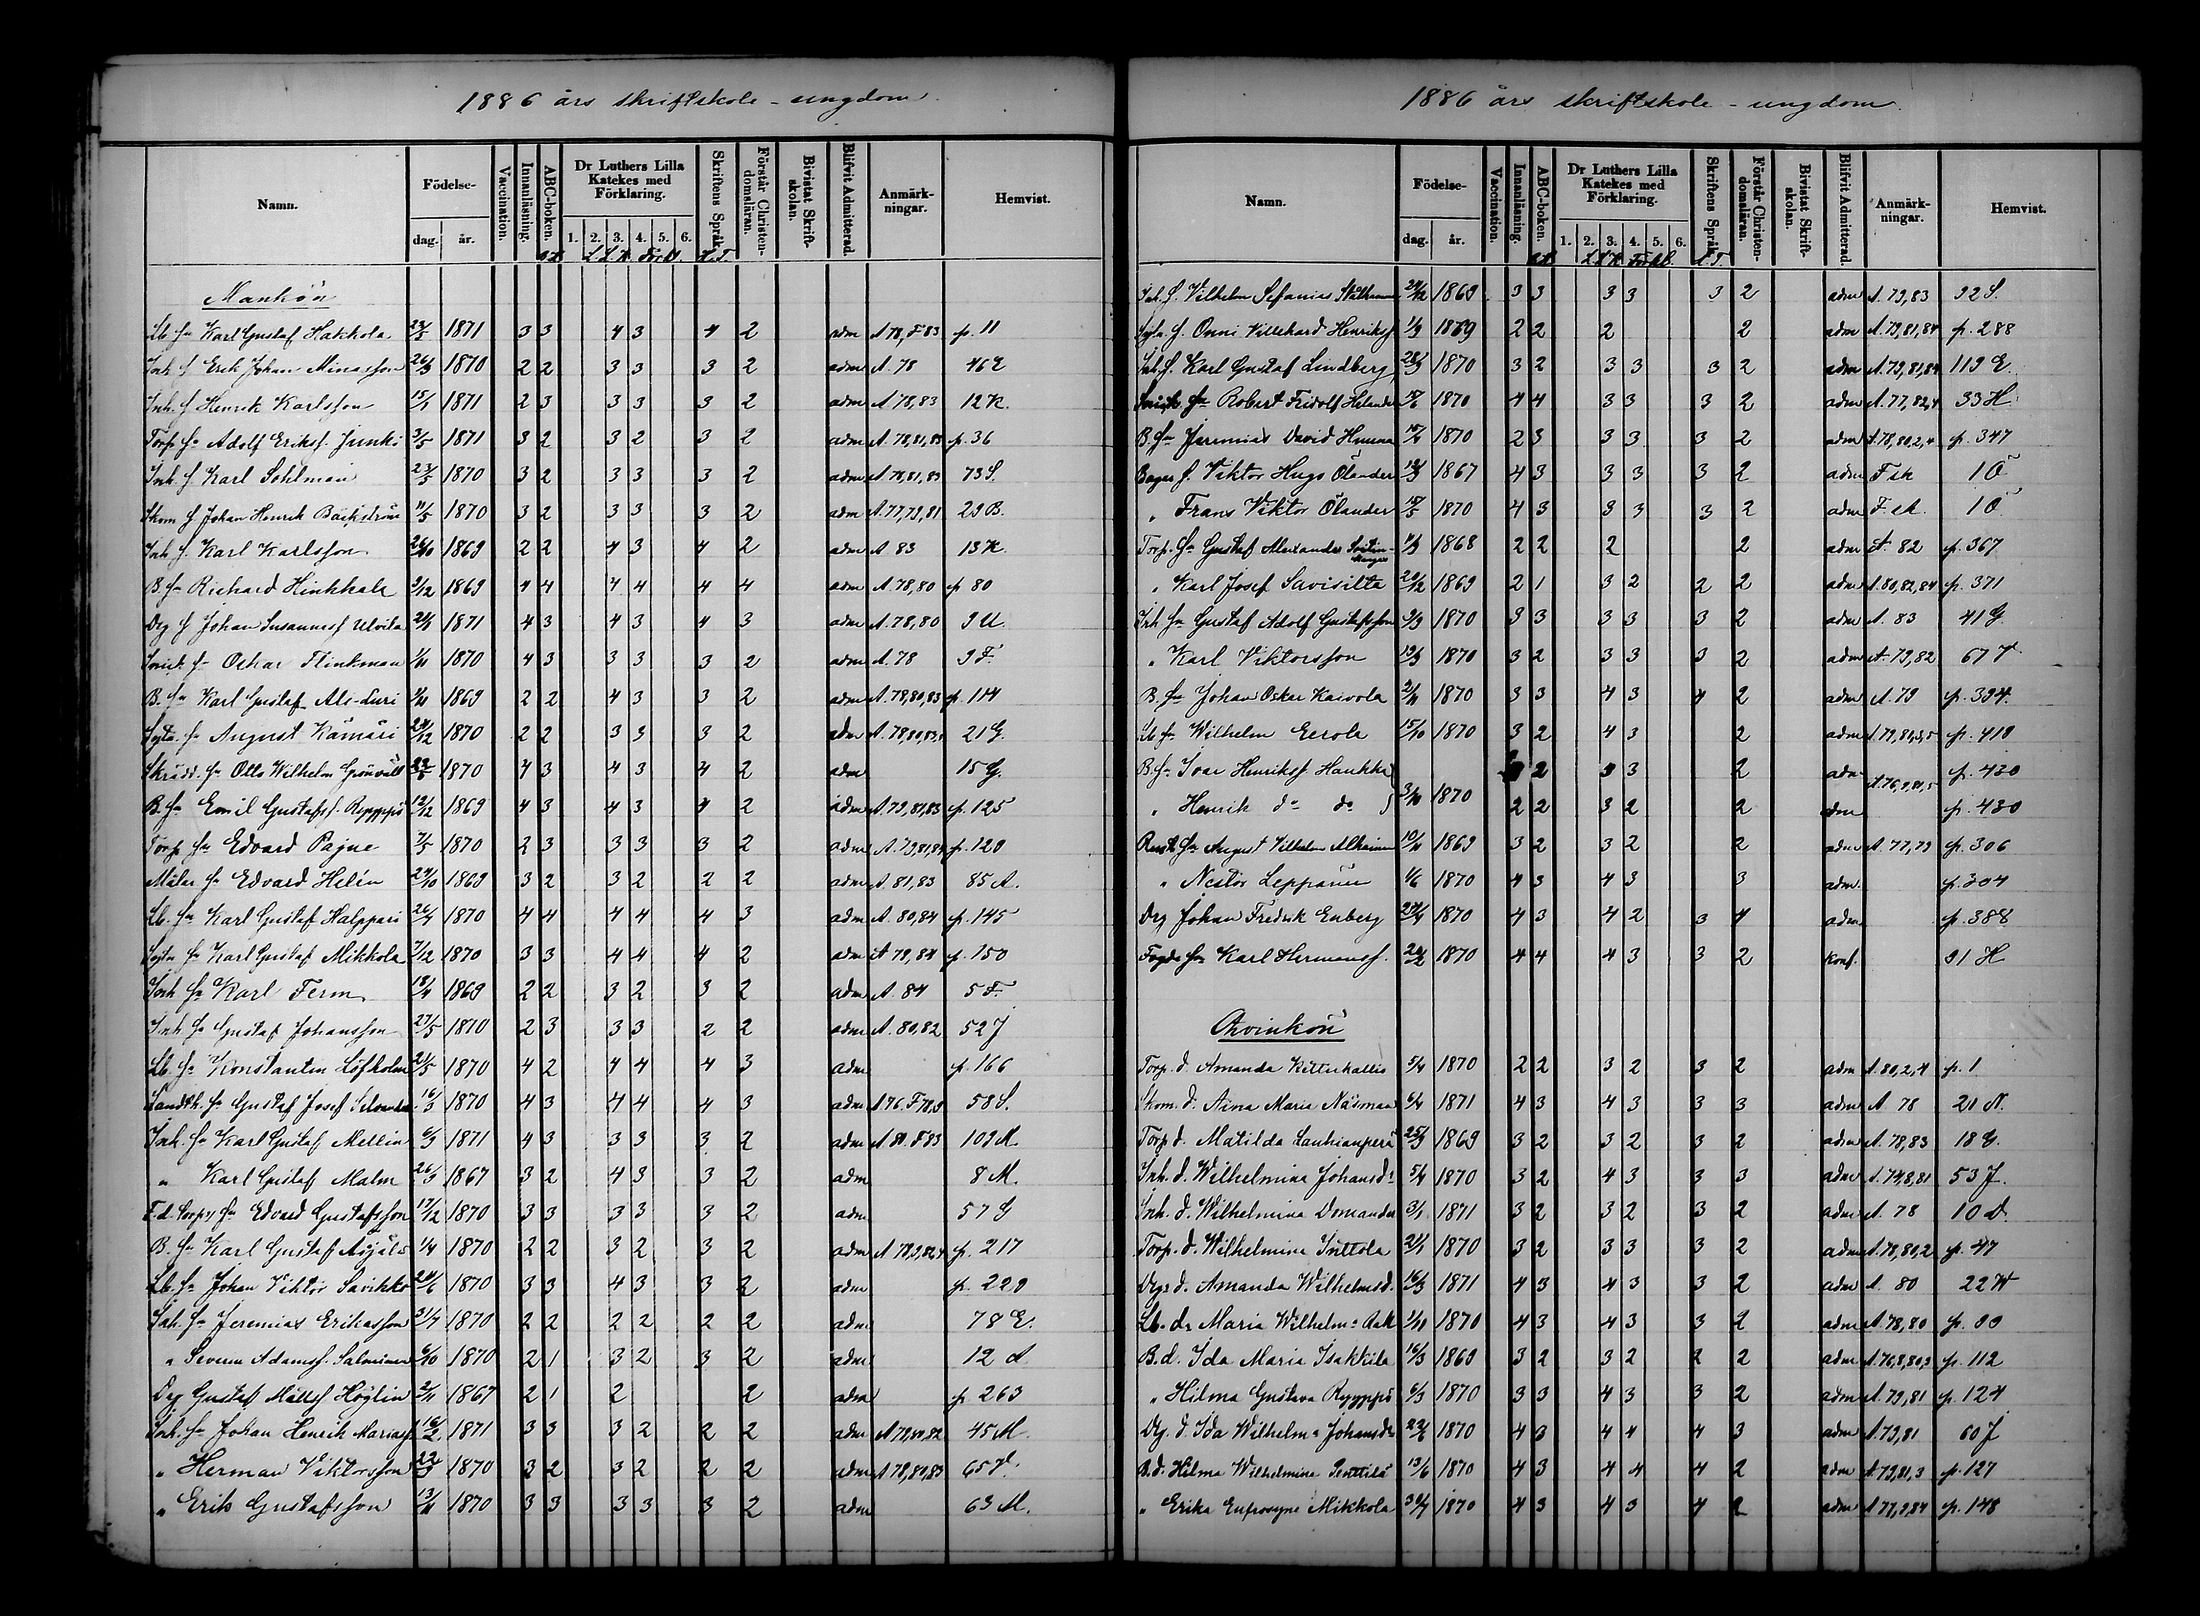 1886 års skriftskole-ungdom.
Namn. Födelse- dag. år. Vaccination. Innanläsning. ABC-boken. Dr Luthers Lilla Katekes med Förklaring. 1. 2. 3. 4. 5. 6. Skriftens Språk. Förstår Christendomsläran. Bivistat Skriftskolan. Blifvit Admitterad. Anmärkningar. Hemvist.
Mankön
Karl Gustaf Hakkola 1871 3 3 4 3 4 2 adm A 78, F 83 p. 11
Inh. f. Erik Johan Minasson 26/3 1870 2 2 3 3 3 2 adm A. 78 46 E
Inh. f. Henrik Karlsson 15/1 1871 2 3 3 3 3 2 adm A 78,83 12 K.
Torp. sn Adolf Eriksf. Junki 3/5 1871 3 2 3 2 3 2 adm A. 78,81,83 p. 36
Inh. f. Karl Sohlman 23/5 1870 3 2 3 3 3 2 adm A. 78,81,83 73 S.
Skom. f. Johan Henrik Bäckström 11/5 1870 3 2 3 3 3 2 adm A. 77,79,81 29 B.
Inh. f. Karl Karlsson 26/10 1869 2 2 4 3 4 2 adm A 83 13 K.
B. sn Richard Hinkkala 9/12 1869 4 4 4 4 4 4 adm A. 78,80 p 80
Drg f. Johan Susannasf Ulvila 1871 4 3 4 3 4 3 adm A. 78,80 9 U
Oskar Flinkman 1/11 1870 4 3 3 3 3 2 adm A. 78 9 F.
B. sn Karl Gustaf Ali-Luri 1869 2 2 4 3 3 2 adm A. 78,80,83 p. 114
August Kämäri 24/12 1870 2 2 3 3 3 2 adm 21 G.
Skrädd. sn Otto Wilhelm Grönvall 1870 4 3 4 3 4 2 adm 15 G.
B. sn Emil Gustafsf. Ryyppö 12/12 1869 4 3 4 3 4 2 adm A. 79,81,83 p. 125
Torp sn Edvard Pajue 7/5 1870 2 3 3 3 3 2 adm A. 79,81,84 p. 129
Målar sn Edvard Helén 29/10 1869 3 2 3 2 2 2 adm A. 81,83 85 A.
Lb. sn Karl Gustaf Halppari 26/4 1870 4 4 4 4 4 3 adm A. 80,84 p. 145
Karl Gustaf Mikkola 7/12 1870 3 3 4 4 4 2 adm A 79,84 p. 150
Inh. sn Karl Ferm 18/4 1869 2 2 3 2 3 2 adm A. 84 5 F.
Inh. sn Gustaf Johansson 27/5 1870 2 3 3 3 2 2 adm A. 80,82 52 J
Lb. sn Konstantin Löfholm 21/5 1870 4 2 4 4 4 3 adm p. 166
Gustaf Josef 16/3 1870 4 3 4 4 4 3 adm 58 S.
Inh. sn Karl Gustaf Mellin 6/3 1871 4 3 3 3 3 2 adm A 81. F 83 109 M.
" Karl Gustaf Malm 26/3 1867 3 2 4 3 3 2 adm 8 M.
F.d. torp. sn Edvard Gustafsson 17/12 1870 3 3 3 3 3 2 adm 57 G
B. sn Karl Gustaf Äijälä 1/4 1870 2 2 3 2 3 2 adm p. 217
Lb. sn Johan Viktor Savikko 24/6 1870 3 3 4 3 3 2 adm p. 229
Inh. sn Jeremias Eriksson 31/7 1870 2 2 2 2 2 2 adm 78 E.
" Severin Adamsf. Salminen 6/10 1870 2 1 3 2 3 2 adm 12 A
Drg Gustaf Höglin 2/11 1867 2 1 2 2 adm p. 263
Inh. sn Johan Henrik Mariasf. 16/2 1871 3 3 3 2 2 2 adm 45 M.
" Herman Viktorsson 22/3 1870 3 2 3 2 2 2 adm A 78,80,83 65 V.
" Erik Gustafsson 13/11 1870 3 3 3 3 3 2 adm 63 M.
1886 års skriftskole-ungdom.
Namn. Födelse- dag. år. Vaccination. Innanläsning. ABC-boken. Dr Luthers Lilla Katekes med Förklaring. 1. 2. 3. 4. 5. 6. Skriftens Språk. Förstår Christendomsläran. Bivistat Skriftskolan. Blifvit Admitterad. Anmärkningar. Hemvist.
Inh. f. Vilhelm Sefanias 1869 3 3 3 3 3 2 adm A. 79,83 92 S.
Onni Villehard Henriksf 1/9 1869 2 2 2 2 adm A. 79,81,84 p. 288
Inh. f. Karl Gustaf Lindberg 1870 3 2 3 3 3 2 adm A. 79,81,84 119 E.
Robert Fridolf Helander 1870 4 4 3 3 3 2 adm A. 77,82,4 33 H.
B. sn Jeremias David 1870 2 3 3 3 3 2 adm A. 78,80,2,4 p. 347
Bagar f. Viktor Hugo Ölander 1867 4 3 3 3 3 2 adm F sk 1 Ö
" Frans Viktor Ölander 18/5 1870 4 3 3 3 3 2 adm F. sk. 1 Ö
Torp. sn Gustaf Alexander 1868 2 2 2 2 adm A. 82 p. 367
" Karl Josef Savisilta 29/12 1869 2 1 3 2 2 2 adm A. 80,82,84 p. 371
Inh sn Gustaf Adolf Gustafsson 9/9 1870 3 3 3 3 3 2 adm A. 83 41 G.
" Karl Viktorsson 19/3 1870 3 2 3 3 3 2 adm A. 79,82 67 V
B. sn Johan Oskar Kaivola 2/11 1870 3 3 4 3 4 2 adm A. 79 p. 394.
Lb sn Wilhelm Eerola 15/10 1870 3 2 4 3 2 adm p. 419
B. sn Ivar Henriksf Haukka 2 3 3 2 adm p. 430
" Henrik do do 3/10 1870 2 2 3 2 2 adm p. 430
Rust. sn August Vilhelm 10/11 1869 3 2 3 2 2 adm A. 77,79 p. 306
" Nestor Leppänen 1/6 1870 4 3 4 3 3 adm p. 304
Drg Johan Fredrik Enberg 27/4 1870 4 3 4 2 3 4 adm p. 388
Fogde sn Karl Hermansf. 1870 4 4 4 3 3 2 konf. 91 H
Qvinkön
Torp. d. Amanda Kitukallio 5/4 1870 2 2 3 2 3 2 adm A. 80,2,4 p. 1
Skom. d. Aina Maria Näsman 6/4 1871 4 3 4 3 3 3 adm A 78 21 N.
Torp d. Matilda Lauhianperä 25/3 1869 3 2 3 2 3 2 adm A. 78,83 18 G.
Inh. d. Wilhelmina Johansdr 5/4 1870 3 2 4 3 3 3 adm 53 J.
Inh. d. Wilhelmina Domander 3/1 1871 3 2 3 2 3 2 adm A. 78 10 D.
Torp. d. Wilhelmina Inttola 21/1 1870 3 2 3 3 3 2 adm A. 78,80,2 p. 47
Amanda Wilhelmsd. 16/3 1871 4 3 4 3 3 2 adm A. 80 22 W
Lb. dr Maria Wilhelma 1/10 1870 4 3 4 3 3 2 adm A. 78,80 p. 99
B. d. Ida Maria Isakkila 16/3 1869 3 2 3 2 2 2 adm p. 112
" Hilma Gustava Ryyppö 6/3 1870 3 3 4 3 3 2 adm A. 79,81 p. 124
Drg. d. Ida Wilhelma Johansdr 22/6 1870 4 3 4 4 4 3 adm A. 79,81 60 J
B.d. Hilma Wilhelmina Penttilä 13/6 1870 4 3 4 4 4 2 adm A. 79,81,3 p. 127
" Erika Eufrosyne Mikkola 1870 4 3 4 3 4 2 adm p. 148